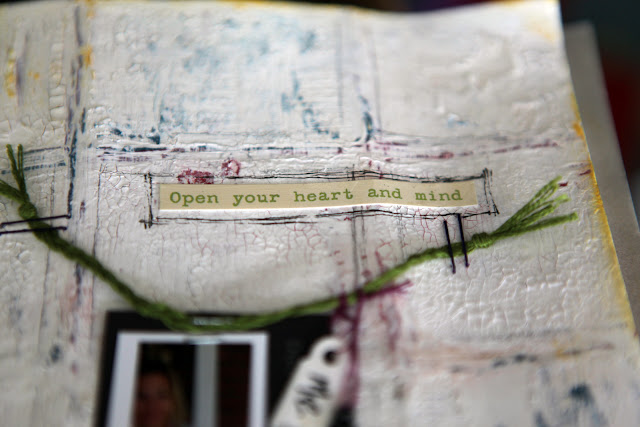 Open your heart and mind